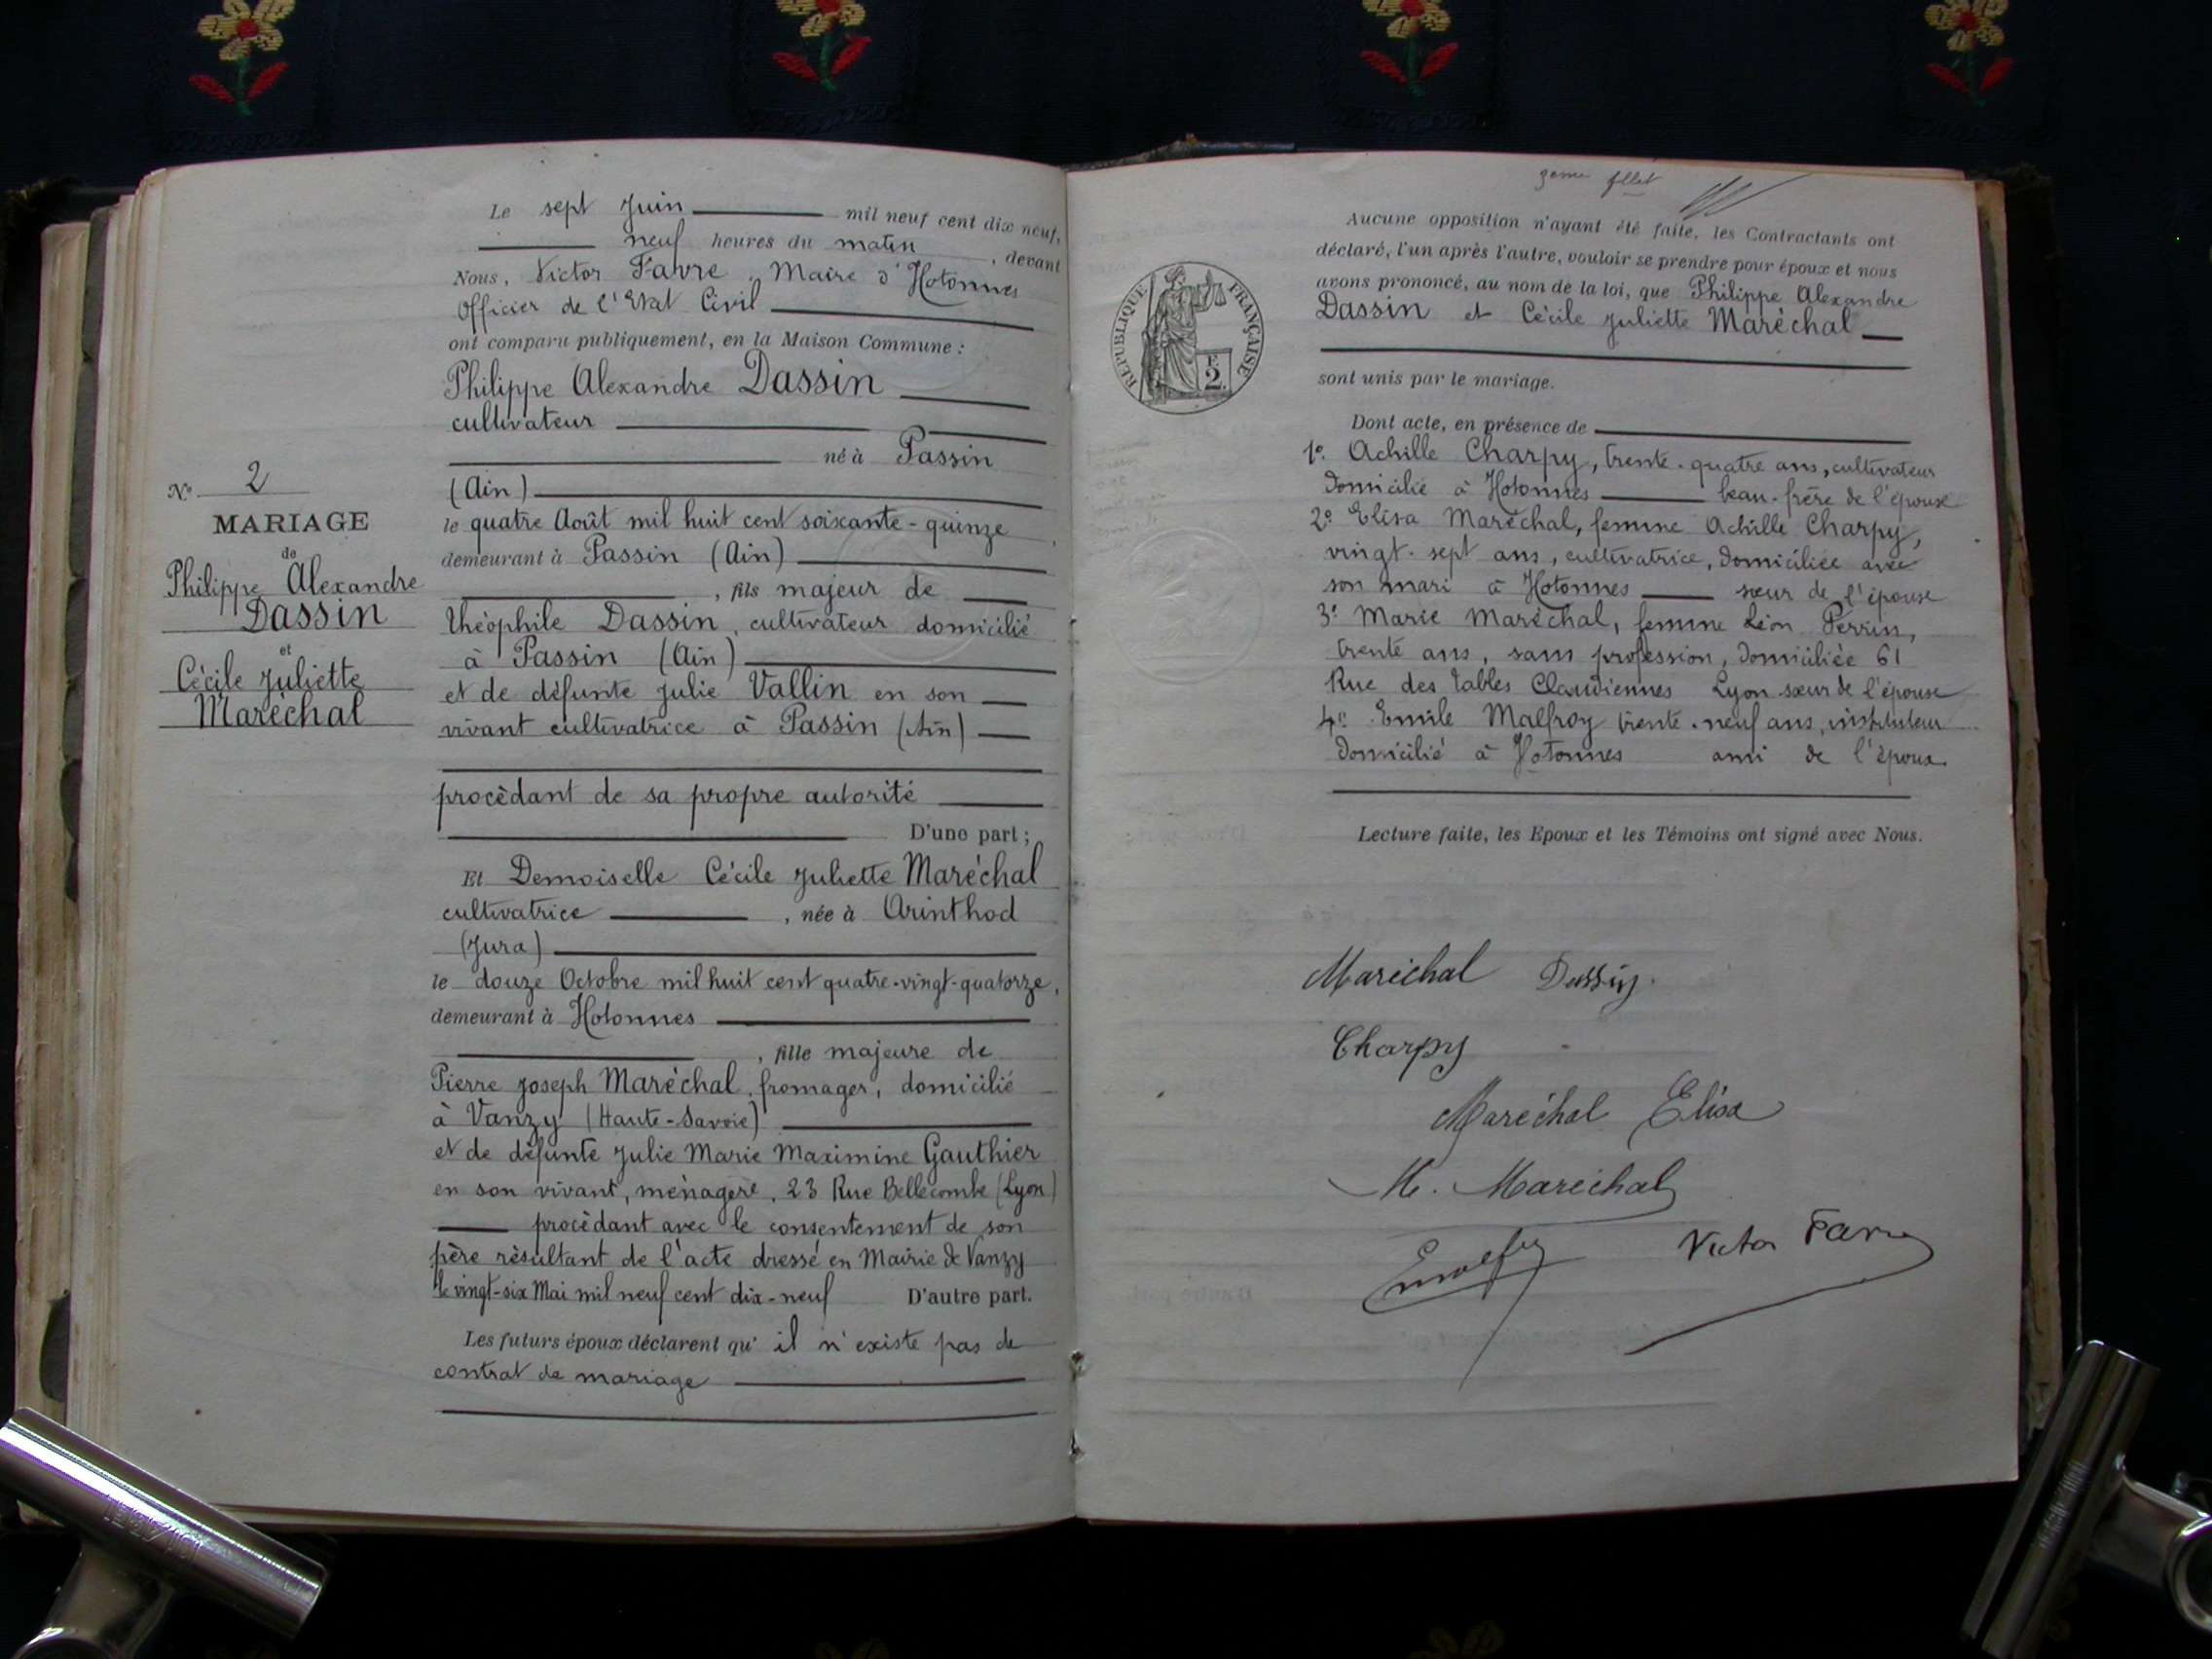 Le sept Juin mil neuf cent dix neuf,
neuf heures du matin, devant
Nous, Victor Favre, Maire d'Hotonnes
Officier de l'Etat Civil
ont comparu publiquement, en la Maison Commune :
Philippe Alexandre Dassin
cultivateur
né à Passin
(Ain)
le quatre Août mil huit cent soixante-quinze,
demeurant à Passin (Ain)
, fils majeur de
Théophile Dassin, cultivateur domicilié
à Passin (Ain)
et de défunte Julie Vallin en son
vivant cultivatrice à Passin (Ain)
procédant de sa propre autorité
D'une part ;
Et Demoiselle Cécile Juliette Maréchal
cultivatrice, née à Arinthod
(Jura)
le douze Octobre mil huit cent quatre-vingt-quatorze,
demeurant à Hotonnes
, fille majeure de
Pierre Joseph Maréchal, fromager, domicilié
à Vanzy (Haute-Savoie)
et de défunte Julie Marie Maximine Gauthier
en son vivant, ménagère, 23 Rue Bellecombe (Lyon)
procédant avec le consentement de son
père résultant de l'acte dressé en Mairie de Vanzy
le vingt-six Mai mil neuf cent dix-neuf D'autre part.
Les futurs époux déclarent qu'il n'existe pas de
contrat de mariage
N° 2
MARIAGE
de
Philippe Alexandre
Dassin
et
Cécile Juliette
Maréchal
3eme fllet
RÉPUBLIQUE FRANÇAISE
2 F.
Aucune opposition n'ayant été faite, les Contractants ont
déclaré, l'un après l'autre, vouloir se prendre pour époux et nous
avons prononcé, au nom de la loi, que Philippe Alexandre
Dassin et Cécile Juliette Maréchal
sont unis par le mariage.
Dont acte, en présence de
1° Achille Charpy, trente-quatre ans, cultivateur
domicilié à Hotonnes beau-frère de l'épouse
2° Elisa Maréchal, femme Achille Charpy,
vingt-sept ans, cultivatrice, domiciliée avec
son mari à Hotonnes sœur de l'épouse
3° Marie Maréchal, femme Léon Perrin,
trente ans, sans profession, domiciliée 61
Rue des Tables Claudiennes Lyon sœur de l'épouse
4° Emile Malfroy trente-neuf ans, instituteur
domicilié à Hotonnes ami de l'époux.
Lecture faite, les Epoux et les Témoins ont signé avec Nous.
Maréchal Dassin.
Charpy
Maréchal Elisa
M. Maréchal
Victor Favre